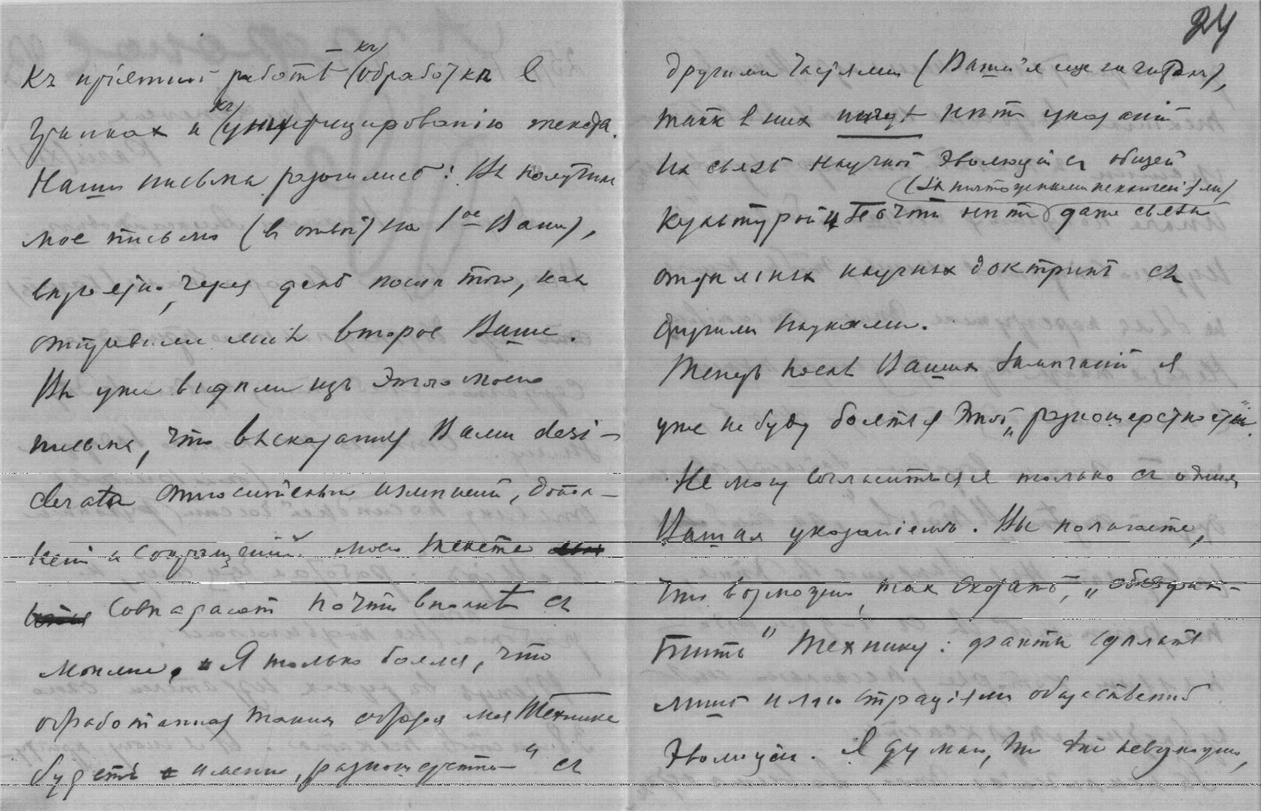 къ пріятной работѣ – (къ) обработкѣ в
Границах и (къ) унифицированію текста.
Наши письма разошлись: Вы получили
мое письмо (в отвѣт) на 1ое Ваше),
вѣроятно, через день послѣ того, как
отправили мнѣ второе Ваше.
Вы уже видѣли изъ этого моего
письма, что высказанныя Вами desi-
derata относительно измѣненій, допол-
неній и сокращеній моего текста
совпадают почти вполнѣ съ
моими. Я только боялся, что
обработанная таким образом моя Техника
будетъ имѣть „разношерстно“ съ
24
другими частями (Вашія еще не читалъ),
такъ в них нѣт указаній
на связь научной эволюціи съ общей
(за ничтожными исключеніями)
культурой и почти нѣт даже связи
отдѣльных научных доктринъ съ
другими науками.
Теперь послѣ Ваших замѣчаній я
уже не буду бояться этой „разношерстности“.
Не могу согласиться только съ одним
Вашим указаніемъ. Вы полагаете,
что возможно, так сказать,
Технику: факты сдѣлать
лишь иллюстраціями общественной
Эволюціи. Я думаю, что это невозможно,